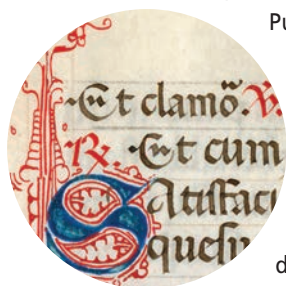 Pu
Et clamõ. V.
R. Et cum
Satisfac
quesu
d